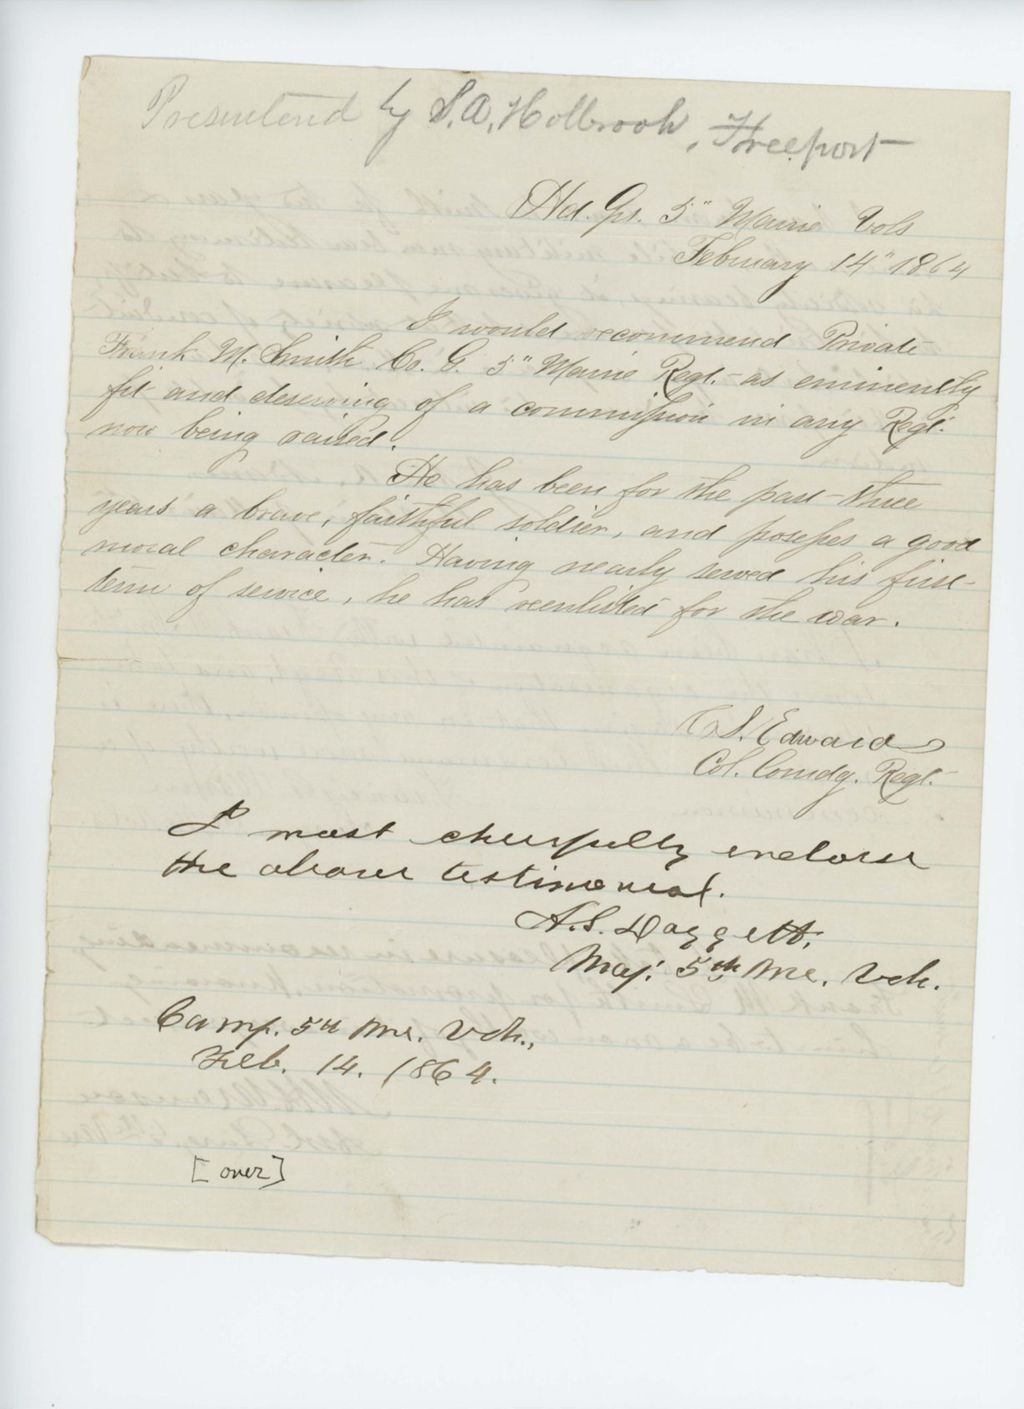 Presentend by S.A. Holbrook, Freeport
Hd. Qrs. 5" Maine Vols
February 14" 1864
I would recommend Private
Frank M. Smith Co. G. 5" Maine Regt. as eminently
fit and deserving of a commission in any Regt.
now being raised.
He has been for the past three
years a brave, faithful soldier, and posesses a good
moral character. Having nearly served his first
term of service, he has reenlisted for the war.
C. S. Edwards
Col. Comdg. Regt.
I most cheerfully endorse
the above testimonial.
A. S. Daggett,
Maj. 5th Me. Vols.
Camp. 5th Me. Vols.,
Feb. 14. 1864.
[over]